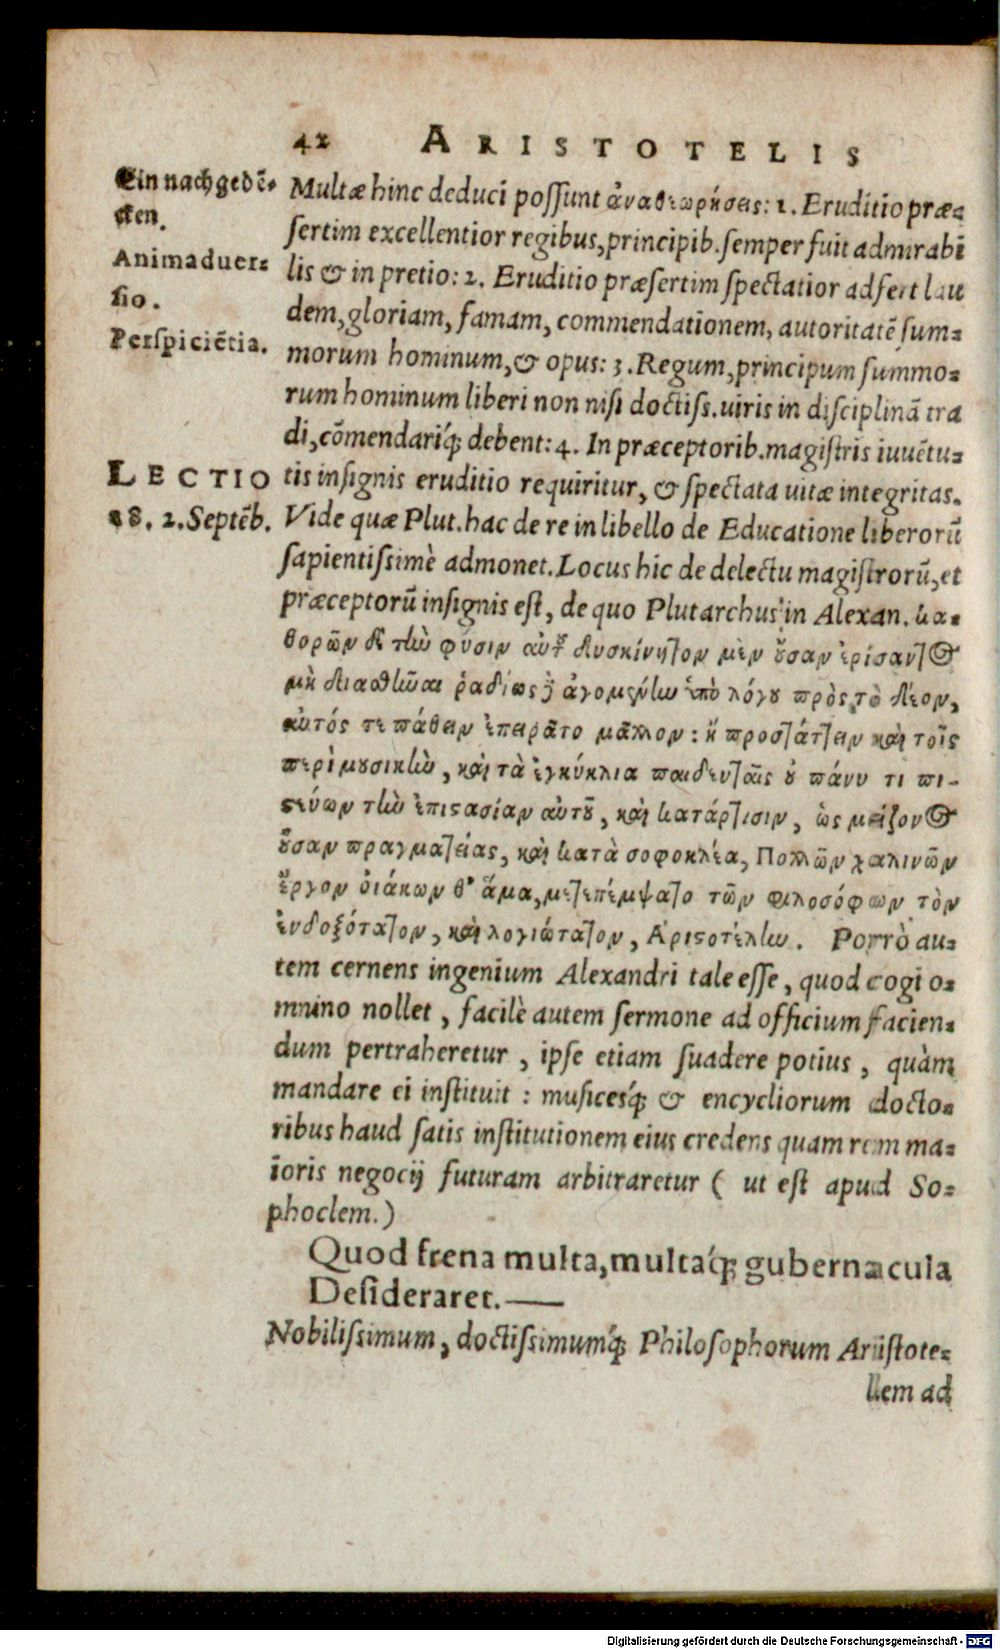 42 ARISTOTELIS
Ein nachgedē⸗
cken.
Animaduer⸗
sio.
Perspiciētia.
LECTIO
18. 2. Septēb.
Multæ hinc deduci possunt ἀναθεωρήσεις: 1. Eruditio præ⸗
sertim excellentior regibus, principib. semper fuit admirabi
lis & in pretio: 2. Eruditio præsertim spectatior adfert lau
dem, gloriam, famam, commendationem, autoritatē sum⸗
morum hominum, & opus: 3. Regum, principum summo⸗
rum hominum liberi non nisi doctiss. uiris in disciplinā tra
di, cōmendariq́; debent: 4. In præceptorib. magistris iuuētu⸗
tis insignis eruditio requiritur, & spectata uitæ integritas.
Vide quæ Plut. hac de re in libello de Educatione liberorū
sapientissimè admonet. Locus hic de delectu magistrorū, et
præceptorū insignis est, de quo Plutarchus in Alexan. κα⸗
θορῶν δὲ τὼ φύσιν αὐτȣ͂ δυσκίνητον μὲν ȣ̓͂σαν ἐρίσαντος
μὴ βιαθῶαι ῥαδίως ἀγομένω ὑπὸ λόγȣ πρὸς τὸ δέον,
αὐτός τε πείθειν ἐπειρᾶτο μᾶλλον: ἢ προστάττειν καὶ τοῖς
περὶ μȣσικὼ, καὶ τὰ ἐγκύκλια παιδευταῖς ȣ̓ πάνυ τι πι-
στεύων τὼ ἐπιστασίαν αὐτȣ͂, καὶ κατάρτισιν, ὡς μείζονος
ȣ̓͂σαν πραγματείας, καὶ κατὰ σοφοκλέα, Πολλῶν χαλινῶν
ἔργον οἰάκων θ' ἅμα, μετεπέμψατο τῶν φιλοσόφων τὸν
ἐνδοξότατον, καὶ λογιώτατον, Ἀριστοτέλω. Porrò au⸗
tem cernens ingenium Alexandri tale esse, quod cogi o⸗
mnino nollet, facilè autem sermone ad officium facien⸗
dum pertraheretur, ipse etiam suadere potius, quàm
mandare ei instituit: musicesq́; & encycliorum docto⸗
ribus haud satis institutionem eius credens quam rem ma⸗
ioris negocij futuram arbitraretur ( ut est apud So⸗
phoclem.)
Quod frena multa, multaq́; gubernacula
Desideraret.——
Nobilissimum, doctissimumq́; Philosophorum Aristote⸗
llem ad
Digitalisierung gefördert durch die Deutsche Forschungsgemeinschaft - DFG